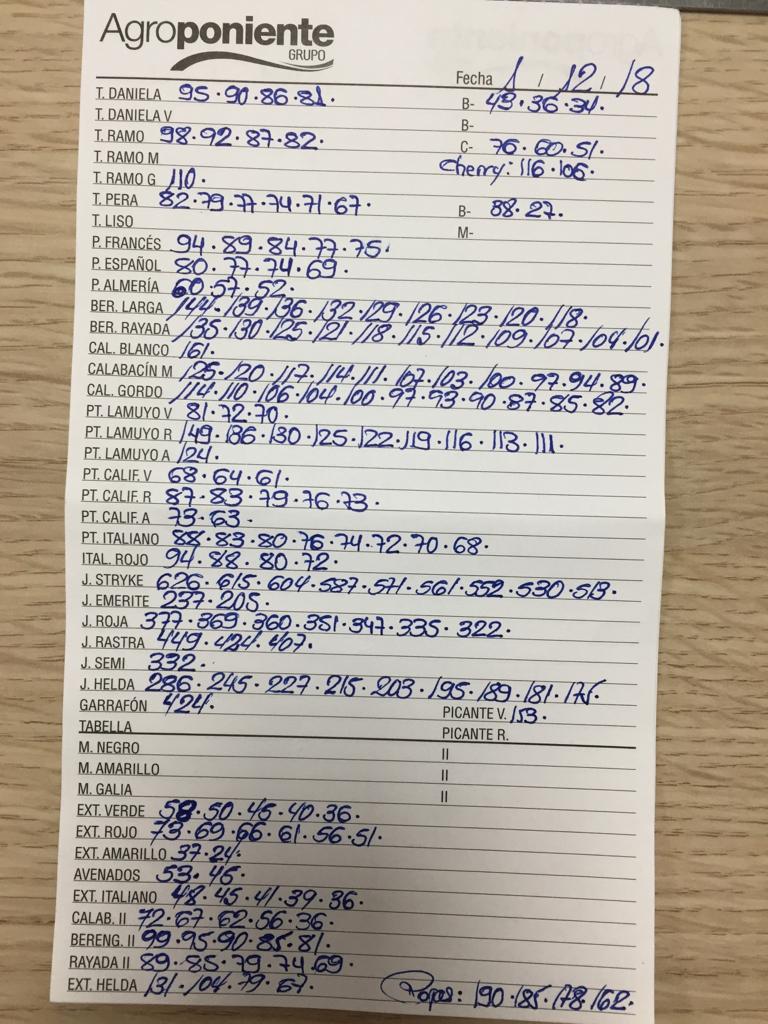 Agroponiente
GRUPO
Fecha 1 / 12 / 18
T. DANIELA 95.90.86.81. B- 43.36.34.
T. DANIELA V B-
T. RAMO 98.92.87.82. C- 76.60.51.
T. RAMO M Cherry: 116.106.
T. RAMO G 110.
T. PERA 82.79.77.74.71.67. B- 38.27.
T. LISO M-
P. FRANCÉS 94.89.84.77.75.
P. ESPAÑOL 80.77.74.69.
P. ALMERÍA 60.57.52.
BER. LARGA 144.139.136.132.129.126.123.120.118.
BER. RAYADA 135.130.125.121.118.115.112.109.107.104.101.
CAL. BLANCO 161.
CALABACÍN M 125.120.117.114.111.107.103.100.97.94.89.
CAL. GORDO 114.110.106.104.100.97.93.90.87.85.82.
PT. LAMUYO V 81.72.70.
PT. LAMUYO R 149.136.130.125.122.119.116.113.111.
PT. LAMUYO A 124.
PT. CALIF. V 68.64.61.
PT. CALIF. R 87.83.79.76.73.
PT. CALIF. A 73.63.
PT. ITALIANO 88.83.80.76.74.72.70.68.
ITAL. ROJO 94.88.80.72.
J. STRYKE 626.615.604.587.571.561.552.530.513.
J. EMERITE 237.205.
J. ROJA 377.369.360.351.347.335.322.
J. RASTRA 449.424.407.
J. SEMI 332.
J. HELDA 286.245.227.215.203.195.189.181.175.
GARRAFÓN 424. PICANTE V. 153.
TABELLA PICANTE R.
M. NEGRO II
M. AMARILLO II
M. GALIA II
EXT. VERDE 58.50.45.40.36.
EXT. ROJO 73.69.66.61.56.51.
EXT. AMARILLO 37.24.
AVENADOS 53.45.
EXT. ITALIANO 48.45.41.39.36.
CALAB. II 72.67.62.56.36.
BERENG. II 99.95.90.85.81.
RAYADA II 89.85.79.74.69.
EXT. HELDA 131.104.79.67. 190.185.178.162.